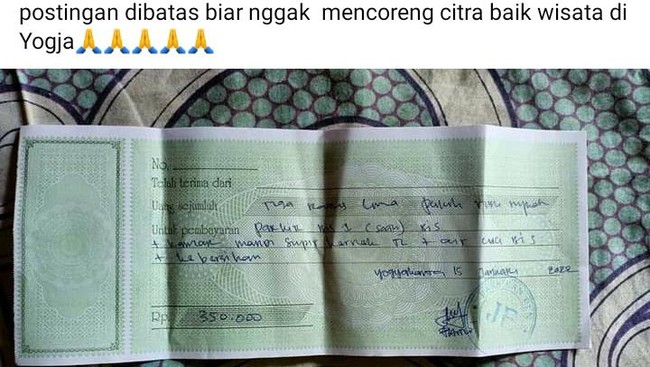 postingan dibatas biar nggak mencoreng citra baik wisata di
Yogja🙏🙏🙏🙏🙏
No.
Telah terima dari
Uang sejumlah Tiga Ratus Lima puluh ribu rupiah
Untuk pembayaran Parkir bis 1 (satu) Bis
+ kamar mandi supir kernek TL + air cuci Bis
+ kebersihan
Yogyakarta 15 Januari 2022
Rp. 350.000